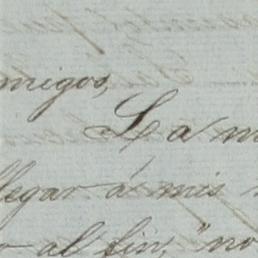 migos,
La m
llegar á mis
o al fin, "no